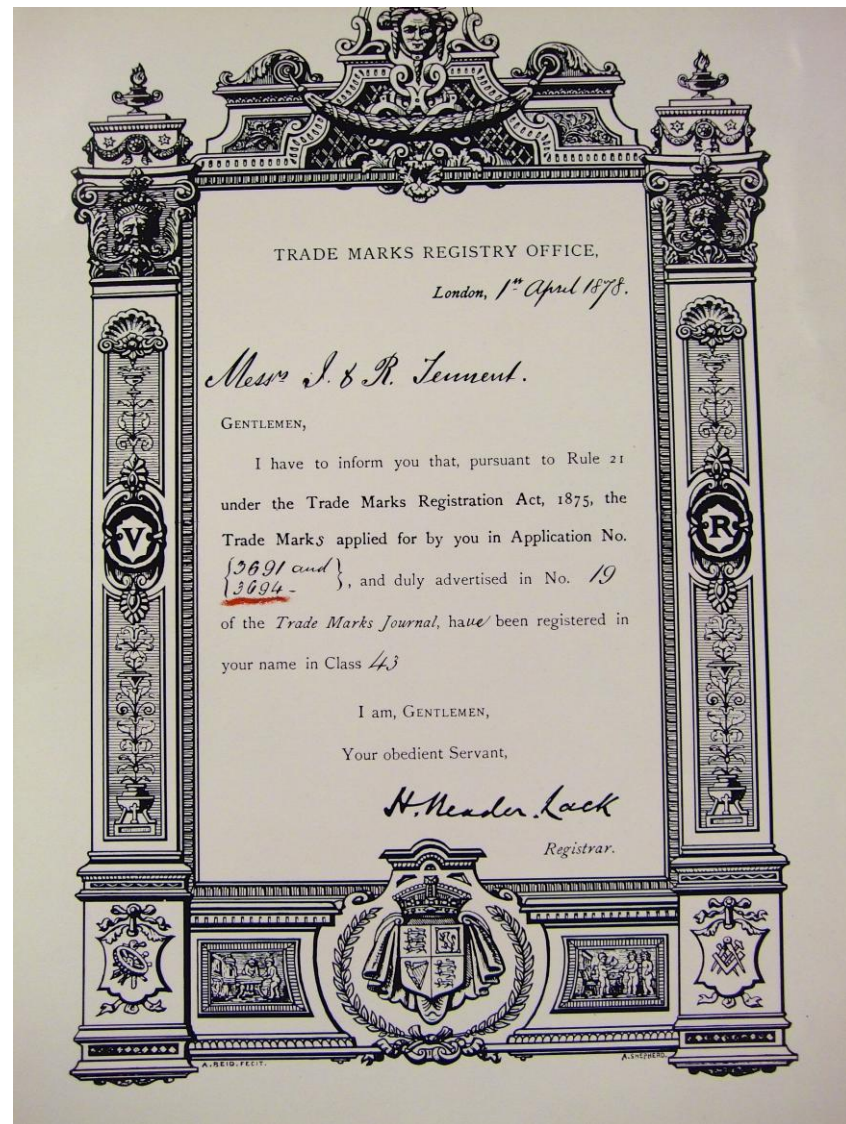 TRADE MARKS REGISTRY OFFICE,
London, 1st April 1878.
Messrs J. & R. Tennent.
GENTLEMEN,
I have to inform you that, pursuant to Rule 21
under the Trade Marks Registration Act, 1875, the
Trade Marks applied for by you in Application No.
{3691 and
3694-}, and duly advertised in No. 19
of the Trade Marks Journal, have been registered in
your name in Class 43
I am, GENTLEMEN,
Your obedient Servant,
H. Reader Lack
Registrar.
V
R
A. REID. FECIT.
A. SHEPHERD.